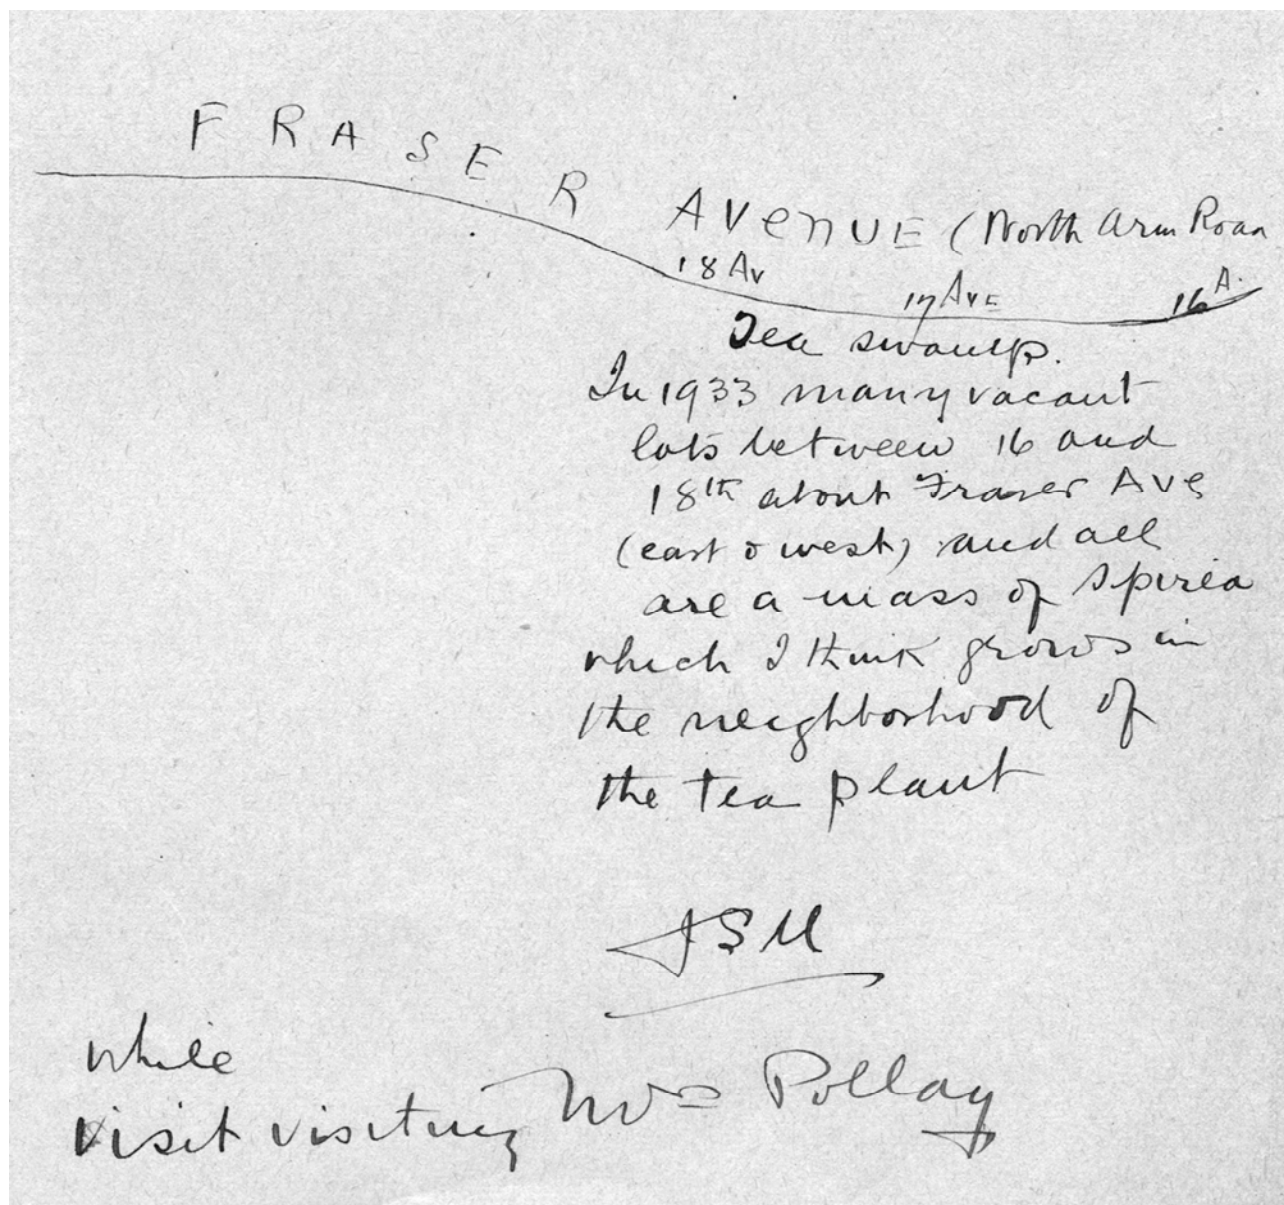 FRASER AVENUE (North Arm Road
18 Av 17 AVE 16 A.
Tea swamp.
In 1933 many vacant
lots between 16 and
18th about Fraser Ave
(east & west) and all
are a mass of spirea
which I think grows in
the neighborhood of
the tea plant
JSM
while
visit visiting Mrs Pollay